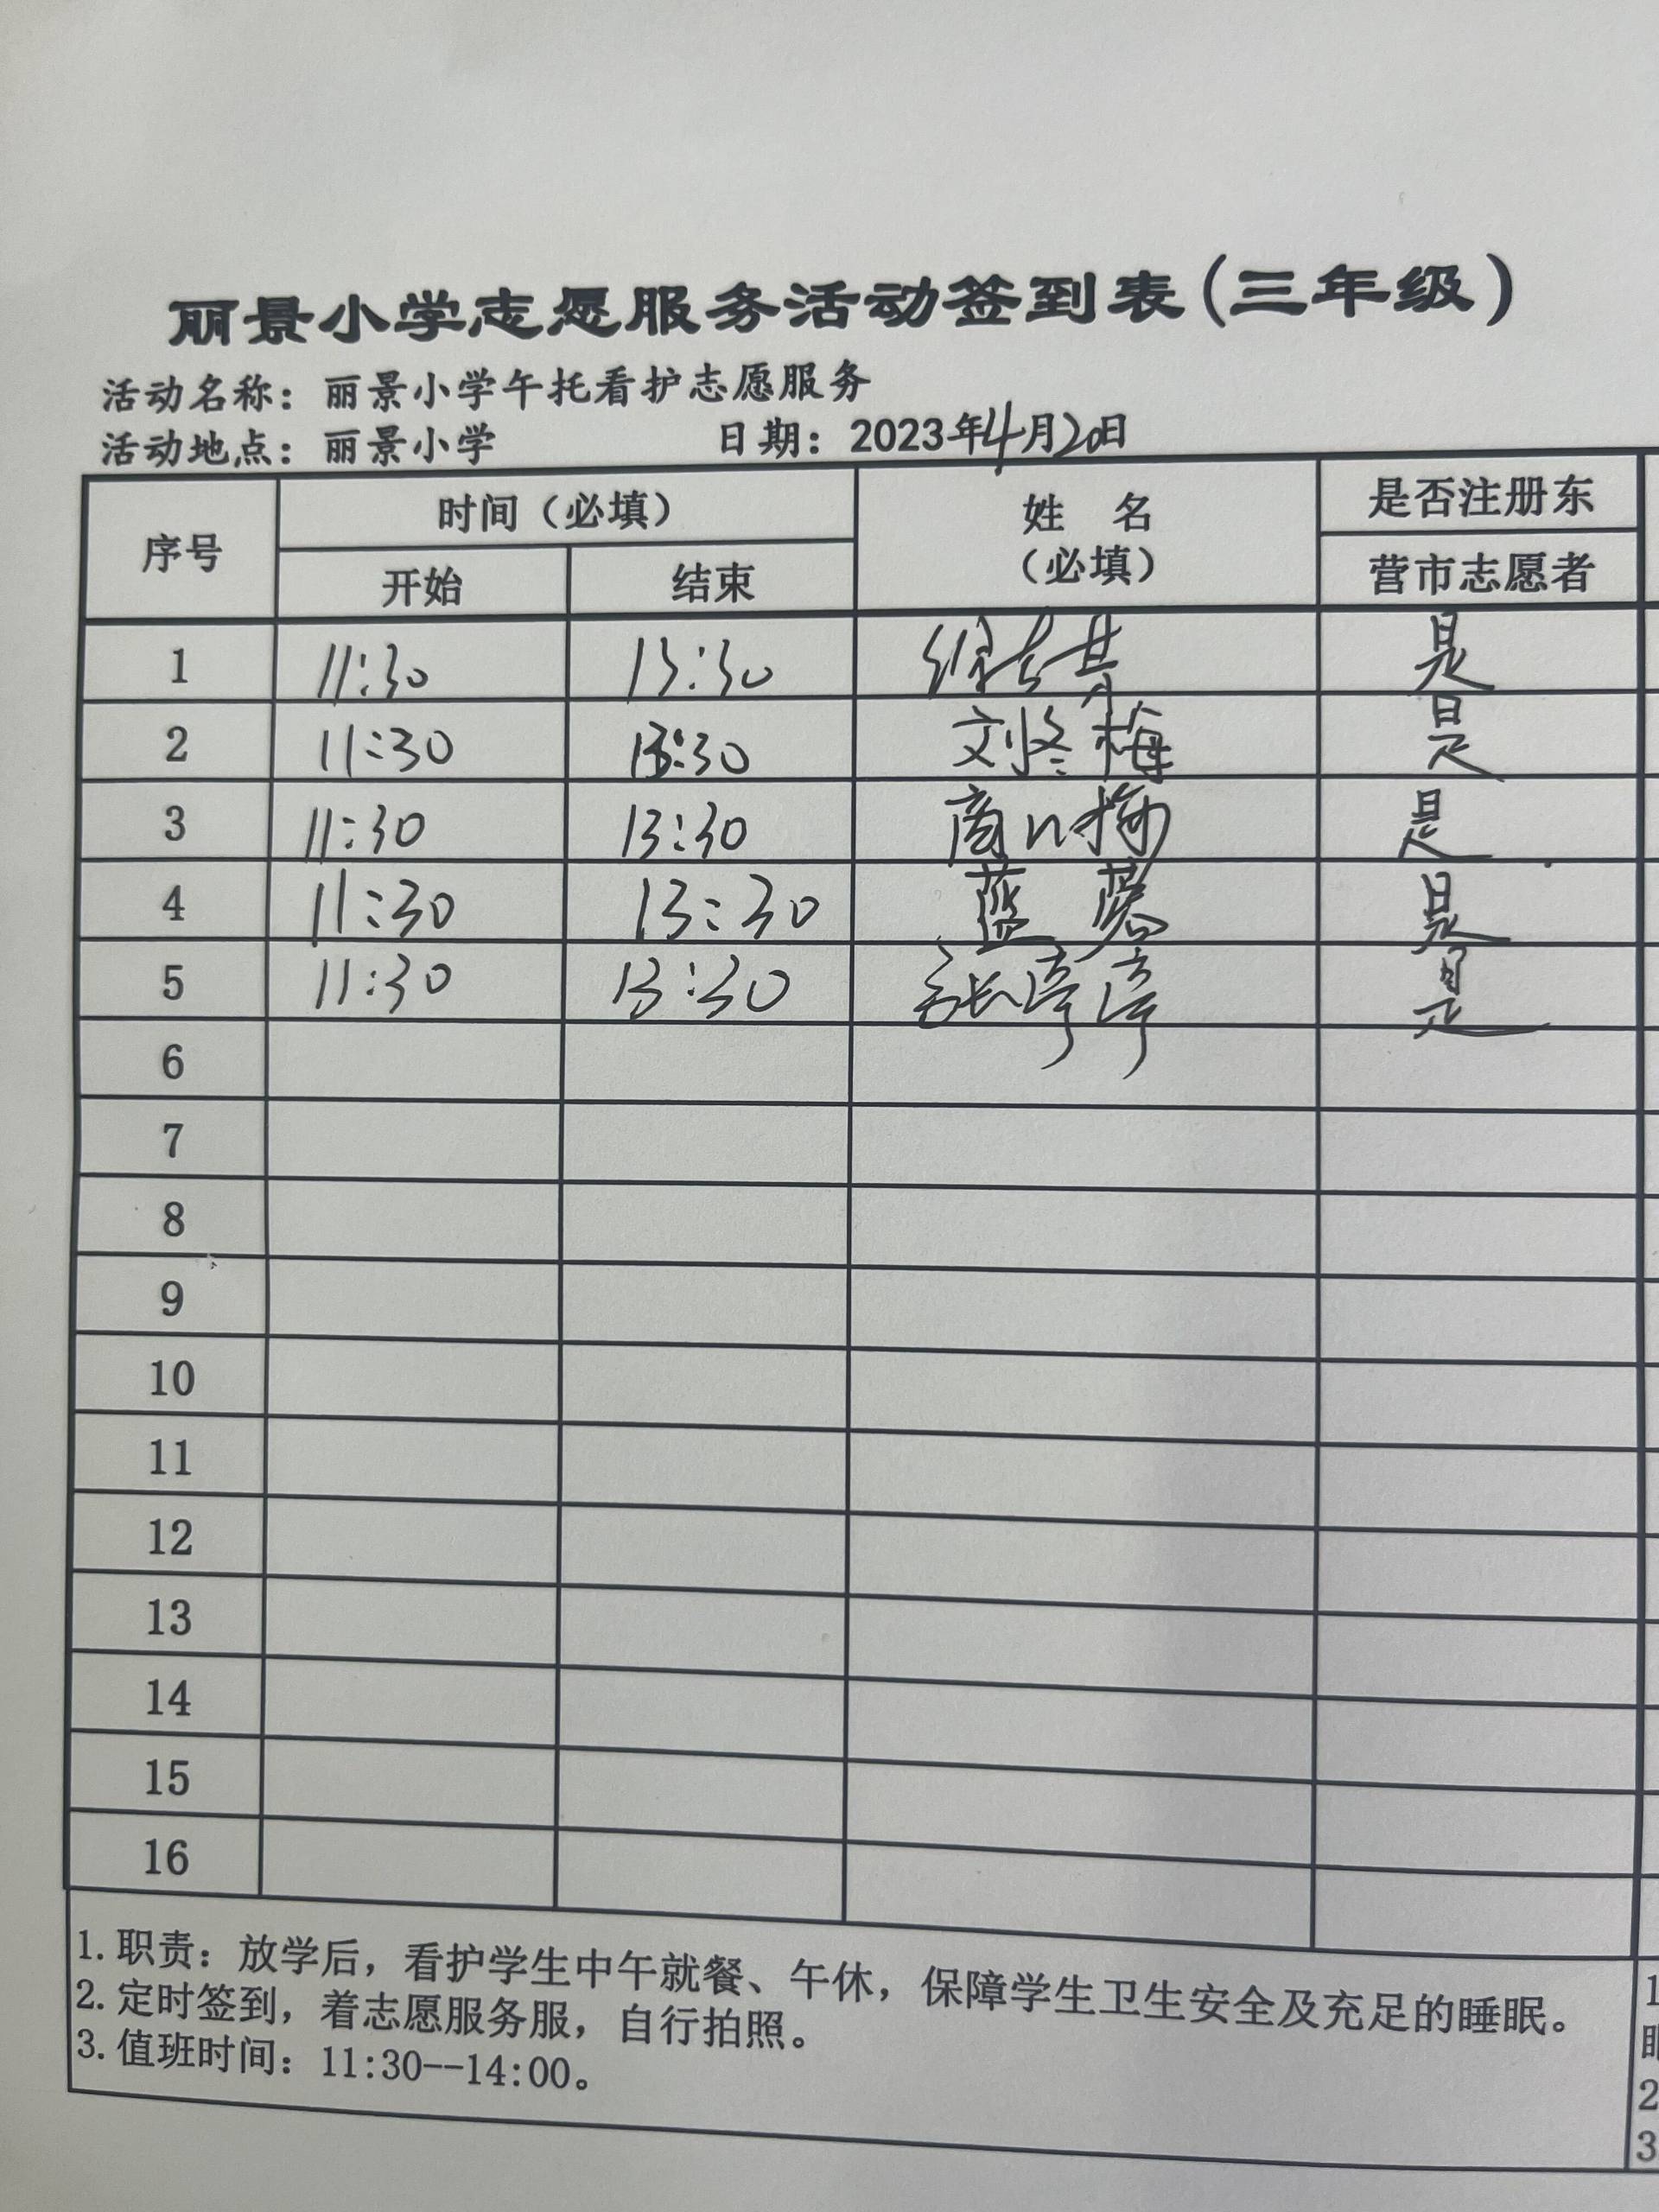 丽景小学志愿服务活动签到表(三年级)
活动名称：丽景小学午托看护志愿服务
活动地点：丽景小学 日期：2023年4月20日
序号 时间（必填） 姓 名 （必填） 是否注册东
开始 结束 营市志愿者
1 11:30 13:30 是
2 11:30 13:30 刘冬梅 是
3 11:30 13:30 商 是
4 11:30 13:30 蓝 是
5 11:30 13:30 张 是
6
7
8
9
10
11
12
13
14
15
16
1.职责：放学后，看护学生中午就餐、午休，保障学生卫生安全及充足的睡眠。
2.定时签到，着志愿服务服，自行拍照。
3.值班时间：11:30--14:00。
1
眼
2
3